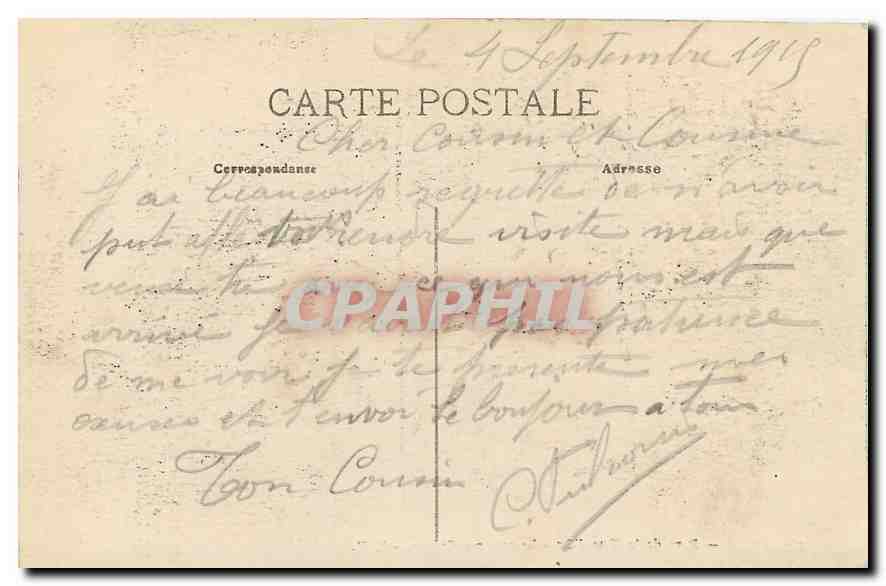 Le 4 Septembre 1915
CARTE POSTALE
Cher Cousin et Cousine
Correspondance
Adresse
J'ai beaucoup regretté de n'avoir
put rendre visite mais que
ce qui nous est
arrivé patience
de me voir je te présente mes
excuses et t'envoi le bonjour a tous
Ton Cousin
CPAPHIL